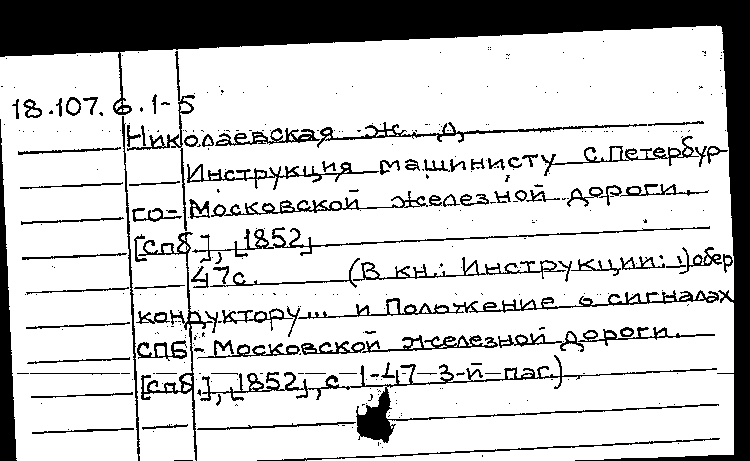 18.107.6.1-5
Николаевская ж. д,
Инструкция машинисту С.Петербур-
го-Московской железной дороги.
[спб.], [1852]
47с. (В кн.: Инструкции: 1) обер
кондуктору... и Положение о сигналах
СПБ-Московской железной дороги.
[спб.], [1852], с. 1-47 3-й паг.)